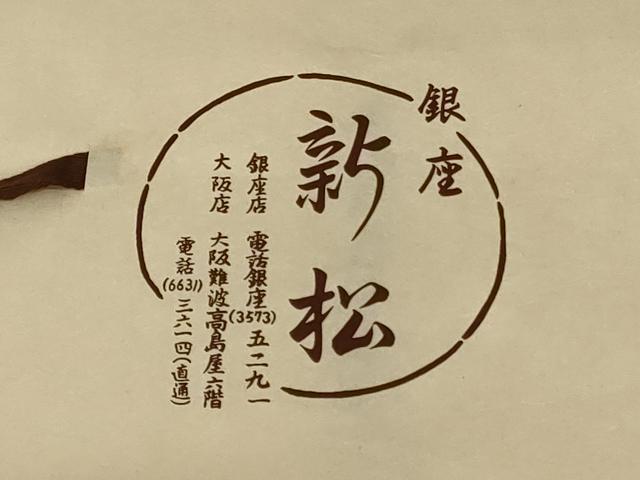 銀座
新松
銀座店 電話銀座(3573)五二九一
大阪店 大阪難波高島屋六階
電話(6631)三六一四(直通)